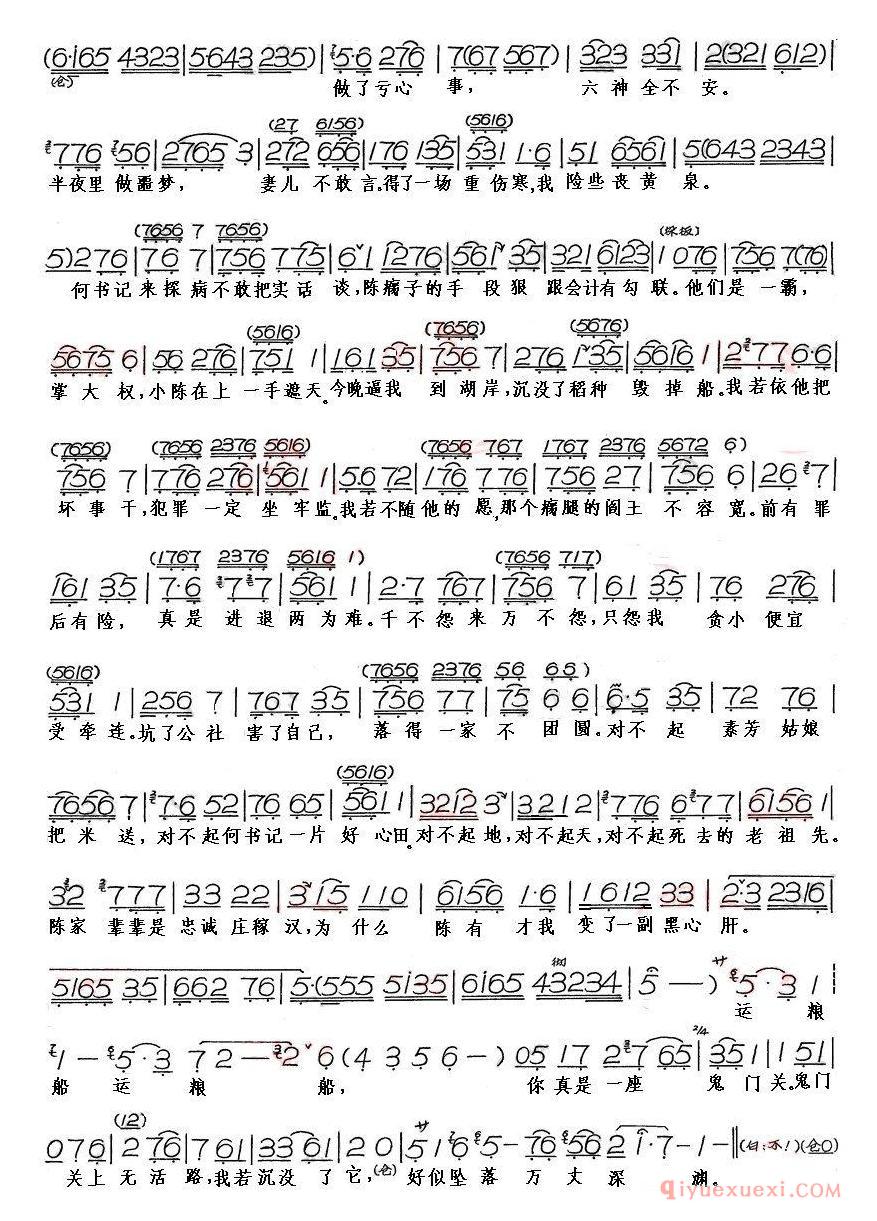 (6·i65 4323|5·643 235)|5·6 276|7(67 567)|323 331|2(321 612)|
(仓) 做了亏心事, 六神全不安。
(27 6156) (5616)
776 56|2765 3|272 656|176 135|531 1·6|51 6561|5(643 2343|
半夜里做噩梦, 妻儿不敢言。得了一场重伤寒,我险些丧黄泉。
(7656 7 7656)
5)276|76 7|756 775|6 1 1276|561 35|321 6123|1 076|756 7(76)|
何书记来探病不敢把实话谈,陈瘸子的手段狠跟会计有勾联。他们是一霸,
(5616) (7656) (5676)
5675 6|56 276|751 1|161 35|756 7|276 135|5616 1|2 77 6·6|
掌大权,小陈在上一手遮天。今晚逼我到湖岸,沉没了稻种毁掉船。我若依他把
(7656) (7656 2376 5616) (7656 767 1767 2376 5672 6)
756 7|776 276|561 1|5·6 72|176 776|756 27|756 6|26 7|
坏事干,犯罪一定坐牢监。我若不随他的愿,那个瘸腿的阎王不容宽。前有罪
(1767 2376 5616 1) (7656 717)
161 35|7·6 77|561 1|2·7 767|756 7|61 35|76 276|
后有险,真是进退两为难。千不怨来万不怨,只怨我贪小便宜
(5616) (7656 2376 56 66)
531 1|256 7|767 35|756 77|75 66|6·5 35|72 76|
受牵连。坑了公社害了自己,落得一家不团圆。对不起素芳姑娘
(5616)
7656 7|7·6 52|76 65|561 1|3212 3|321 2|776 677|6156 1|
把米送,对不起何书记一片好心田。对不起地,对不起天,对不起死去的老祖先。
32 777|33 22|3 15|110|6156 1·6|1612 33|2·3 2316|
陈家辈辈是忠诚庄稼汉,为什么陈有才我变了一副黑心肝。
5165 35|662 76|5·(555 5i35|6i65 43234|5 — —) 5·3 1
运粮
1 — 5·3 7 2 — 2 6 (4 3 5 6 —) 05 17 2 765|351|151|
船运粮船, 你真是一座鬼门关。鬼门
(12)
076|2 76|761|3361|20|51 6 5 — 76 56 2 1·7 — 1 —‖(白:不!)(仓0)
关上无活路,我若沉没了它,(仓)好似坠落万丈深渊。
qiyuexuexi.COM